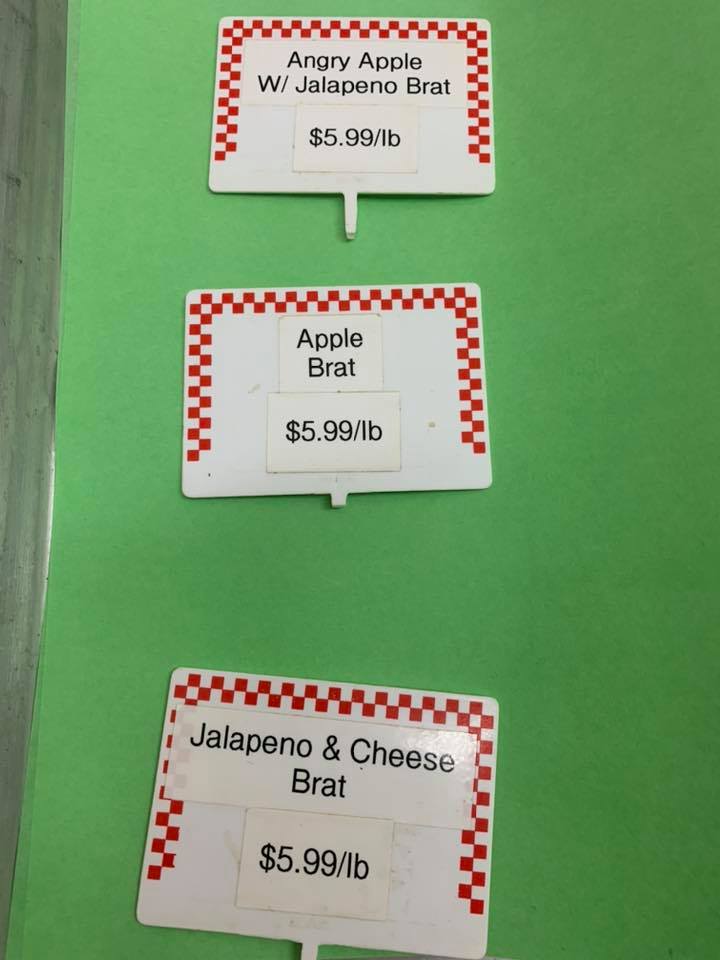 Angry Apple
W/ Jalapeno Brat
$5.99/lb
Apple
Brat
$5.99/lb
Jalapeno & Cheese
Brat
$5.99/lb